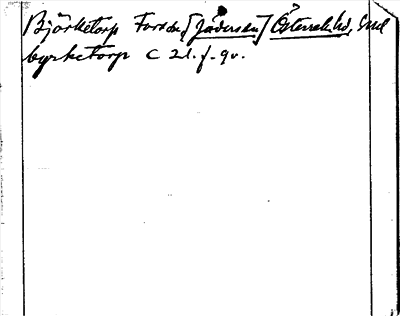 Björketorp Forsa [Jädersén] Österrek hd, Sml
byrketorp C 2d. f. 9v.